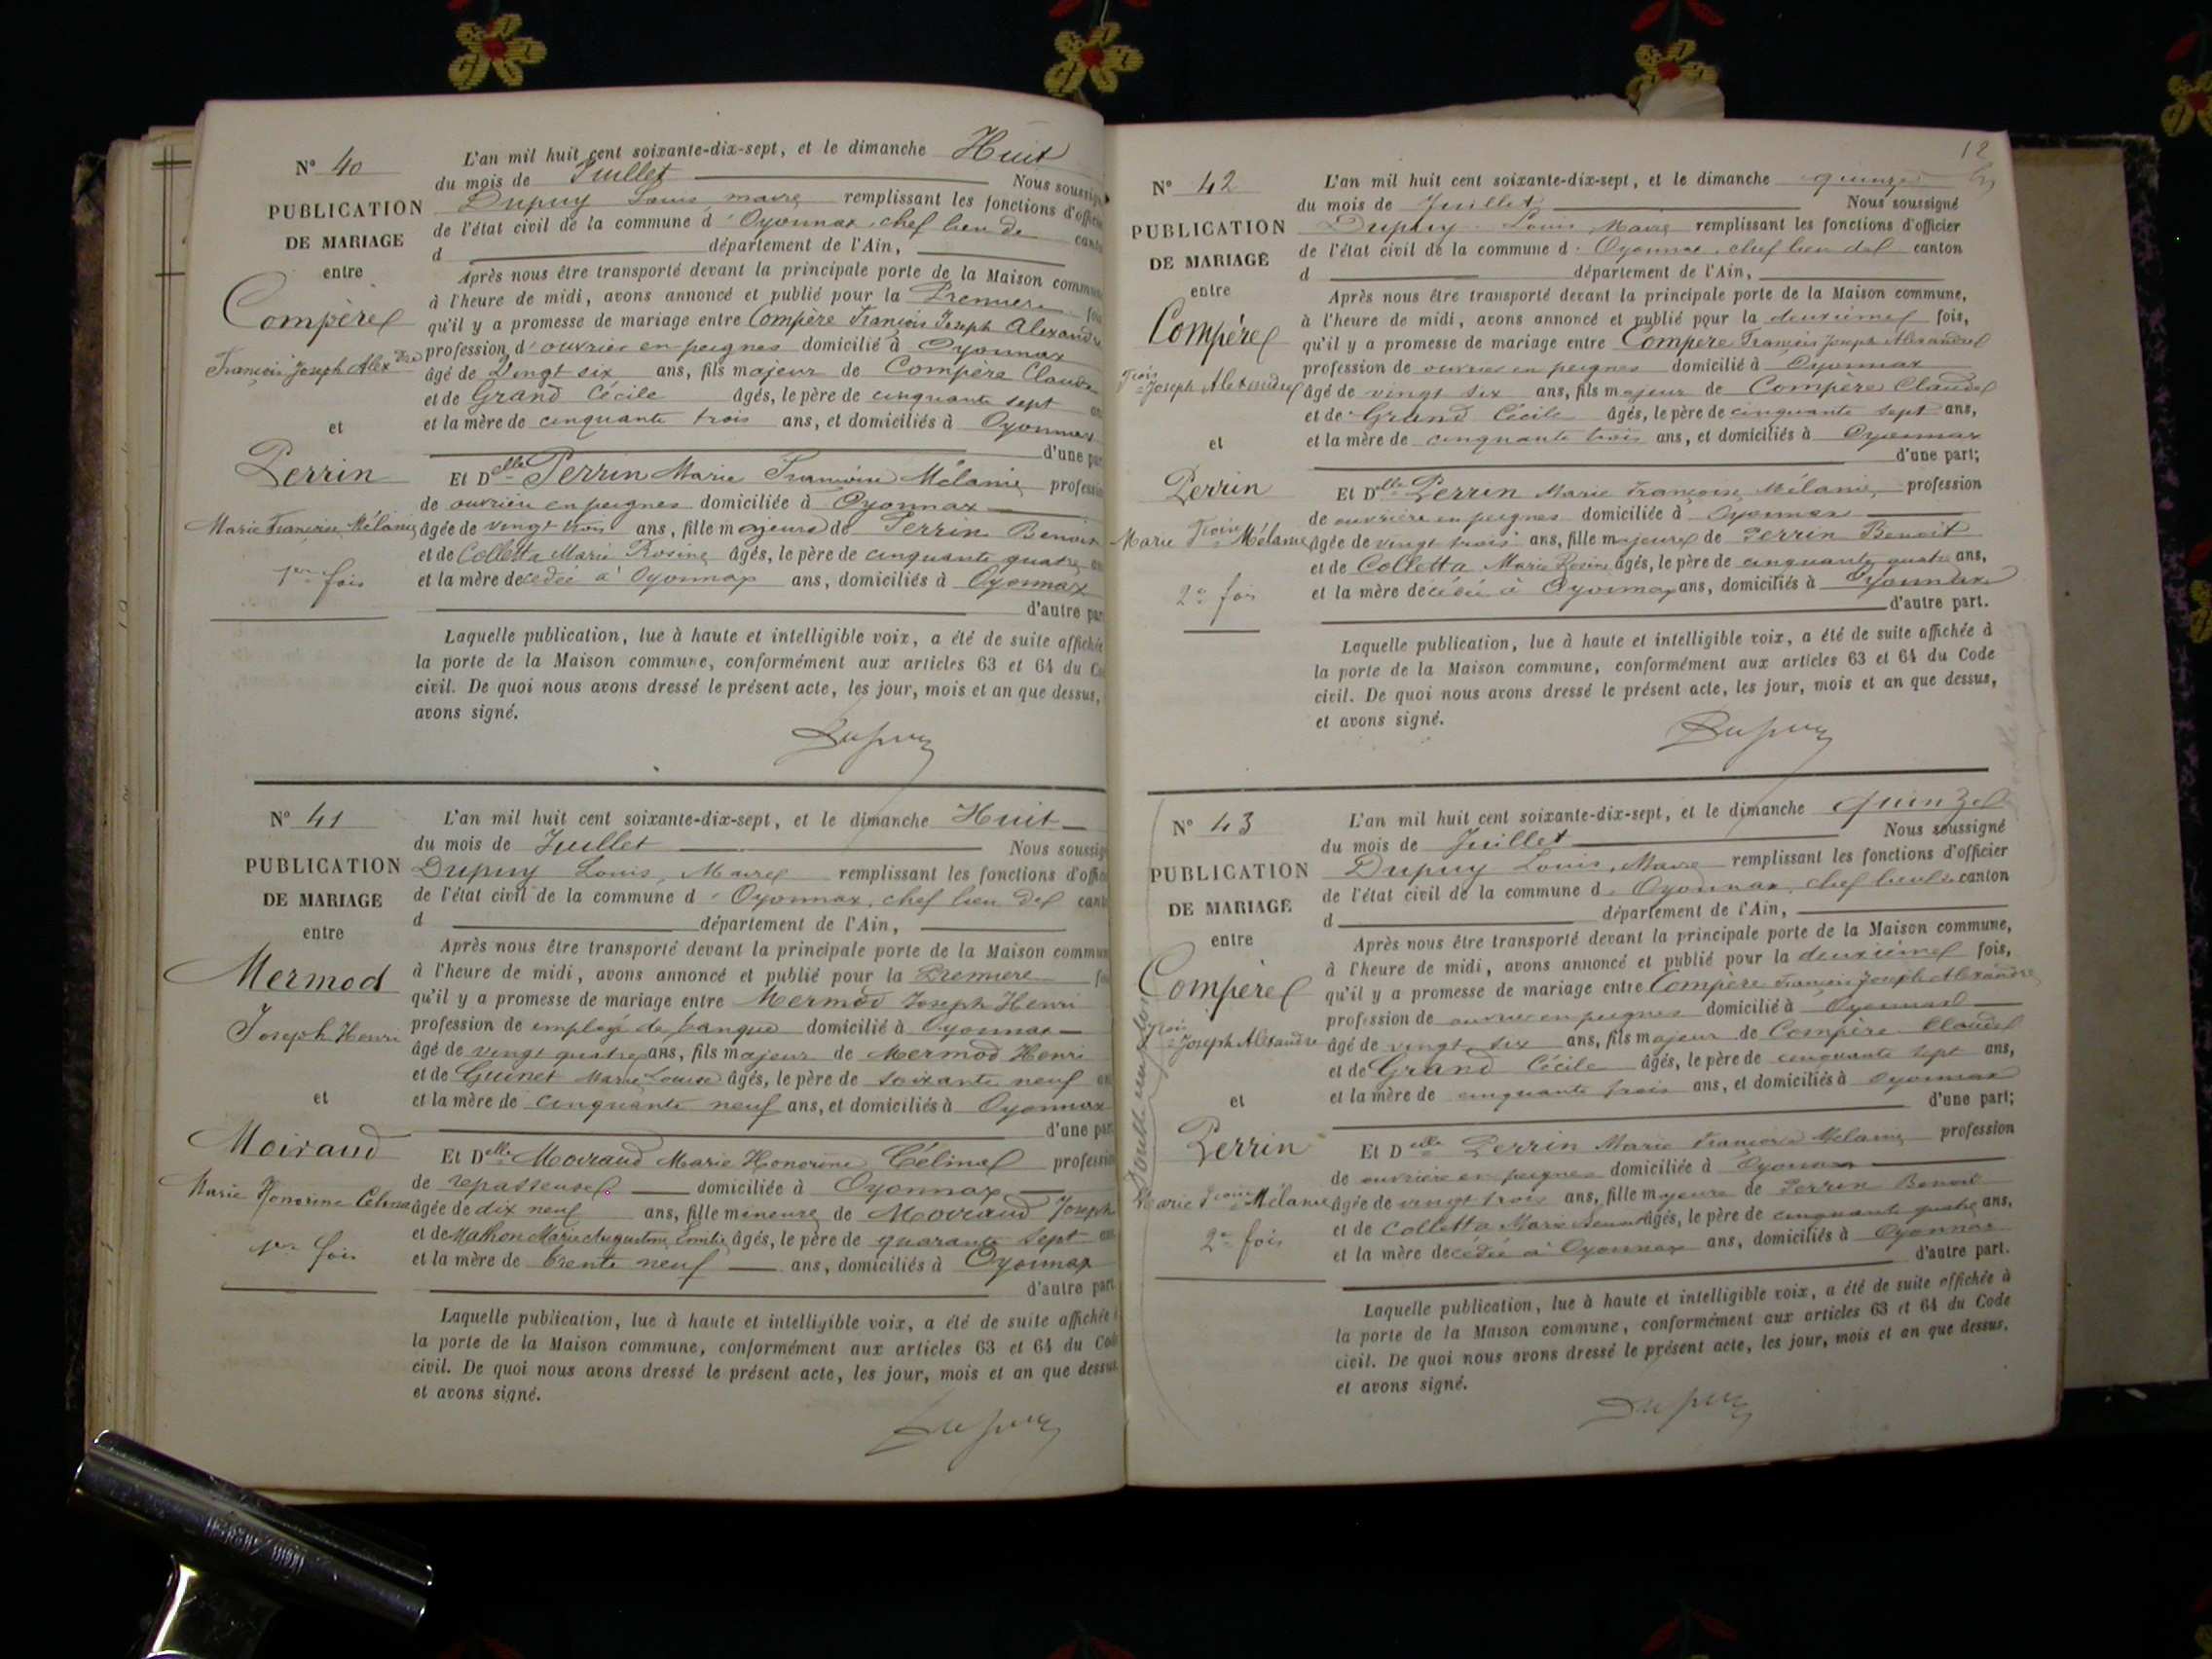 N° 40
PUBLICATION
DE MARIAGE
entre
Compère
François Joseph Alex dre
et
Perrin
Marie Françoise Mélanie
1re fois
L'an mil huit cent soixante-dix-sept, et le dimanche Huit
du mois de Juillet Nous soussigné
Dupuy Louis, maire remplissant les fonctions d'officier
de l'état civil de la commune d'Oyonnax, chef lieu de canton
d département de l'Ain,
Après nous être transporté devant la principale porte de la Maison commune
à l'heure de midi, avons annoncé et publié pour la Première fois
qu'il y a promesse de mariage entre Compère François Joseph Alexandre
profession d'ouvrier en peignes domicilié à Oyonnax
âgé de Vingt six ans, fils majeur de Compère Claude
et de Grand Cécile âgés, le père de cinquante sept ans
et la mère de cinquante trois ans, et domiciliés à Oyonnax
d'une part
Et Delle Perrin Marie Françoise Mélanie profession
de ouvrière en peignes domiciliée à Oyonnax
âgée de vingt trois ans, fille majeure de Perrin Benoit
et de Colletta Marie Rosine âgés, le père de cinquante quatre ans
et la mère décédée à Oyonnax ans, domiciliés à Oyonnax
d'autre part
Laquelle publication, lue à haute et intelligible voix, a été de suite affichée
la porte de la Maison commune, conformément aux articles 63 et 64 du Code
civil. De quoi nous avons dressé le présent acte, les jour, mois et an que dessus,
avons signé.
Dupuy
N° 41
PUBLICATION
DE MARIAGE
entre
Mermod
Joseph Henri
et
Moiraud
Marie Honorine Célina
1re fois
L'an mil huit cent soixante-dix-sept, et le dimanche Huit
du mois de Juillet Nous soussigné
Dupuy Louis, Maire remplissant les fonctions d'officier
de l'état civil de la commune d'Oyonnax, chef lieu de canton
d département de l'Ain,
Après nous être transporté devant la principale porte de la Maison commune
à l'heure de midi, avons annoncé et publié pour la Première fois
qu'il y a promesse de mariage entre Mermod Joseph Henri
profession de employé de banque domicilié à Oyonnax
âgé de vingt quatre ans, fils majeur de Mermod Henri
et de Guinet Marie Louise âgés, le père de soixante neuf ans
et la mère de cinquante neuf ans, et domiciliés à Oyonnax
d'une part
Et Delle Moiraud Marie Honorine Célina profession
de repasseuse domiciliée à Oyonnax
âgée de dix neuf ans, fille mineure de Moiraud Joseph
et de Mathon Marie Augustine Emilie âgés, le père de quarante sept ans
et la mère de trente neuf ans, domiciliés à Oyonnax
d'autre part
Laquelle publication, lue à haute et intelligible voix, a été de suite affichée à
la porte de la Maison commune, conformément aux articles 63 et 64 du Code
civil. De quoi nous avons dressé le présent acte, les jour, mois et an que dessus
et avons signé.
Dupuy
12
N° 42
PUBLICATION
DE MARIAGE
entre
Compère
Fçois Joseph Alexandre
et
Perrin
Marie Fçoise Mélanie
2e fois
L'an mil huit cent soixante-dix-sept, et le dimanche quinze
du mois de Juillet Nous soussigné
Dupuy Louis Maire remplissant les fonctions d'officier
de l'état civil de la commune d'Oyonnax, chef lieu de canton
d département de l'Ain,
Après nous être transporté devant la principale porte de la Maison commune,
à l'heure de midi, avons annoncé et publié pour la deuxième fois,
qu'il y a promesse de mariage entre Compère François Joseph Alexandre
profession de ouvrier en peignes domicilié à Oyonnax
âgé de vingt six ans, fils majeur de Compère Claude
et de Grand Cécile âgés, le père de cinquante sept ans,
et la mère de cinquante trois ans, et domiciliés à Oyonnax
d'une part;
Et Delle Perrin Marie Françoise Mélanie, profession
de ouvrière en peignes domiciliée à Oyonnax
âgée de vingt trois ans, fille majeure de Perrin Benoit
et de Colletta Marie Rosine âgés, le père de cinquante quatre ans,
et la mère décédée à Oyonnax ans, domiciliés à Oyonnax
d'autre part.
Laquelle publication, lue à haute et intelligible voix, a été de suite affichée à
la porte de la Maison commune, conformément aux articles 63 et 64 du Code
civil. De quoi nous avons dressé le présent acte, les jour, mois et an que dessus,
et avons signé.
Dupuy
N° 43
PUBLICATION
DE MARIAGE
entre
Compère
Fçois Joseph Alexandre
et
Perrin
Marie Fçoise Mélanie
2e fois
Double emploi
L'an mil huit cent soixante-dix-sept, et le dimanche quinze
du mois de Juillet Nous soussigné
Dupuy Louis, Maire remplissant les fonctions d'officier
de l'état civil de la commune d'Oyonnax, chef lieu de canton
d département de l'Ain,
Après nous être transporté devant la principale porte de la Maison commune,
à l'heure de midi, avons annoncé et publié pour la deuxième fois,
qu'il y a promesse de mariage entre Compère François Joseph Alexandre
profession de ouvrier en peignes domicilié à Oyonnax
âgé de vingt six ans, fils majeur de Compère Claude
et de Grand Cécile âgés, le père de cinquante sept ans,
et la mère de cinquante trois ans, et domiciliés à Oyonnax
d'une part;
Et Delle Perrin Marie Françoise Mélanie profession
de ouvrière en peignes domiciliée à Oyonnax
âgée de vingt trois ans, fille majeure de Perrin Benoit
et de Colletta Marie âgés, le père de cinquante quatre ans,
et la mère décédée à Oyonnax ans, domiciliés à Oyonnax
d'autre part.
Laquelle publication, lue à haute et intelligible voix, a été de suite affichée à
la porte de la Maison commune, conformément aux articles 63 et 64 du Code
civil. De quoi nous avons dressé le présent acte, les jour, mois et an que dessus,
et avons signé.
Dupuy